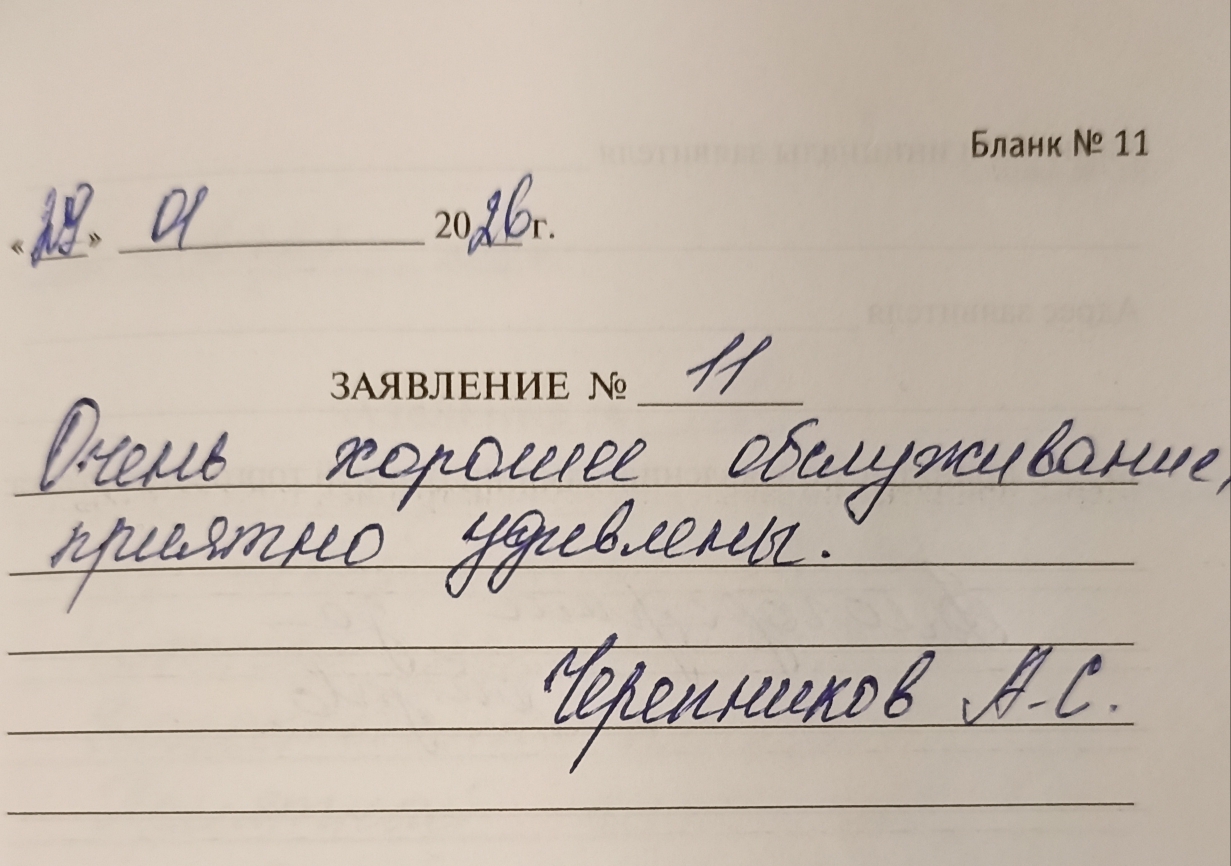 Бланк № 11
«29» 01 2026 г.
ЗАЯВЛЕНИЕ № 11
Очень хорошее обслуживание,
приятно удивлены.
Черепников А.С.